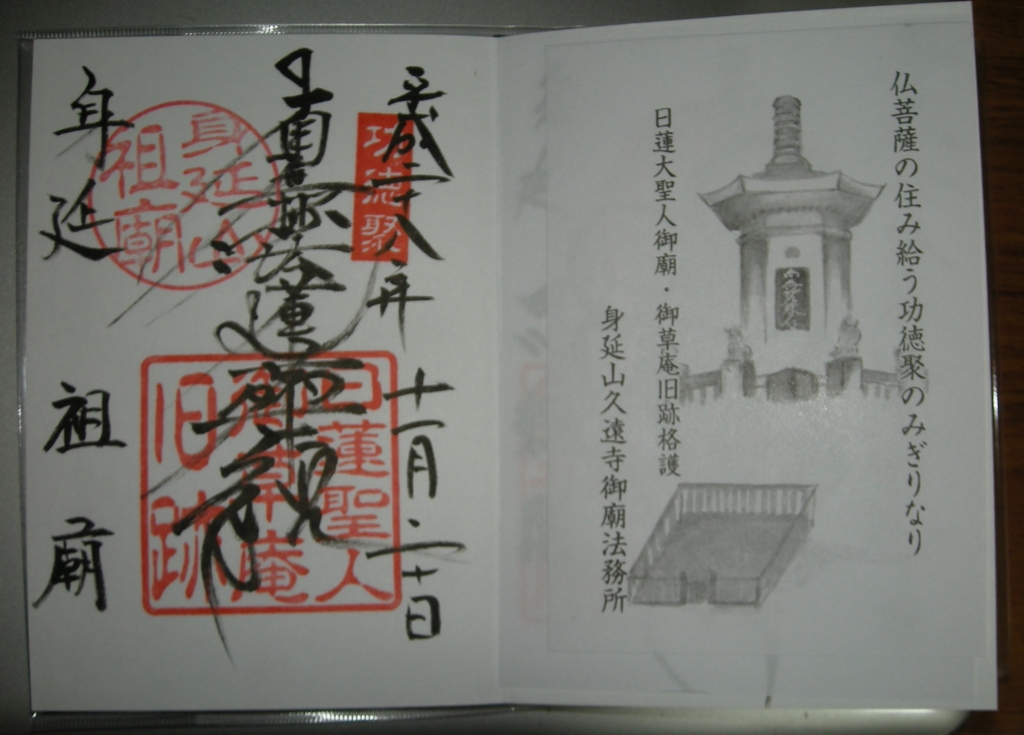 仏菩薩の住み給う功徳聚のみぎりなり
日蓮大聖人御廟・御草庵旧跡格護
身延山久遠寺御廟法務所
平成二十八年 十一月二十日
功徳聚
南無妙法蓮華経
日蓮聖人
御草庵
旧跡
身延山
祖廟
身延 祖廟